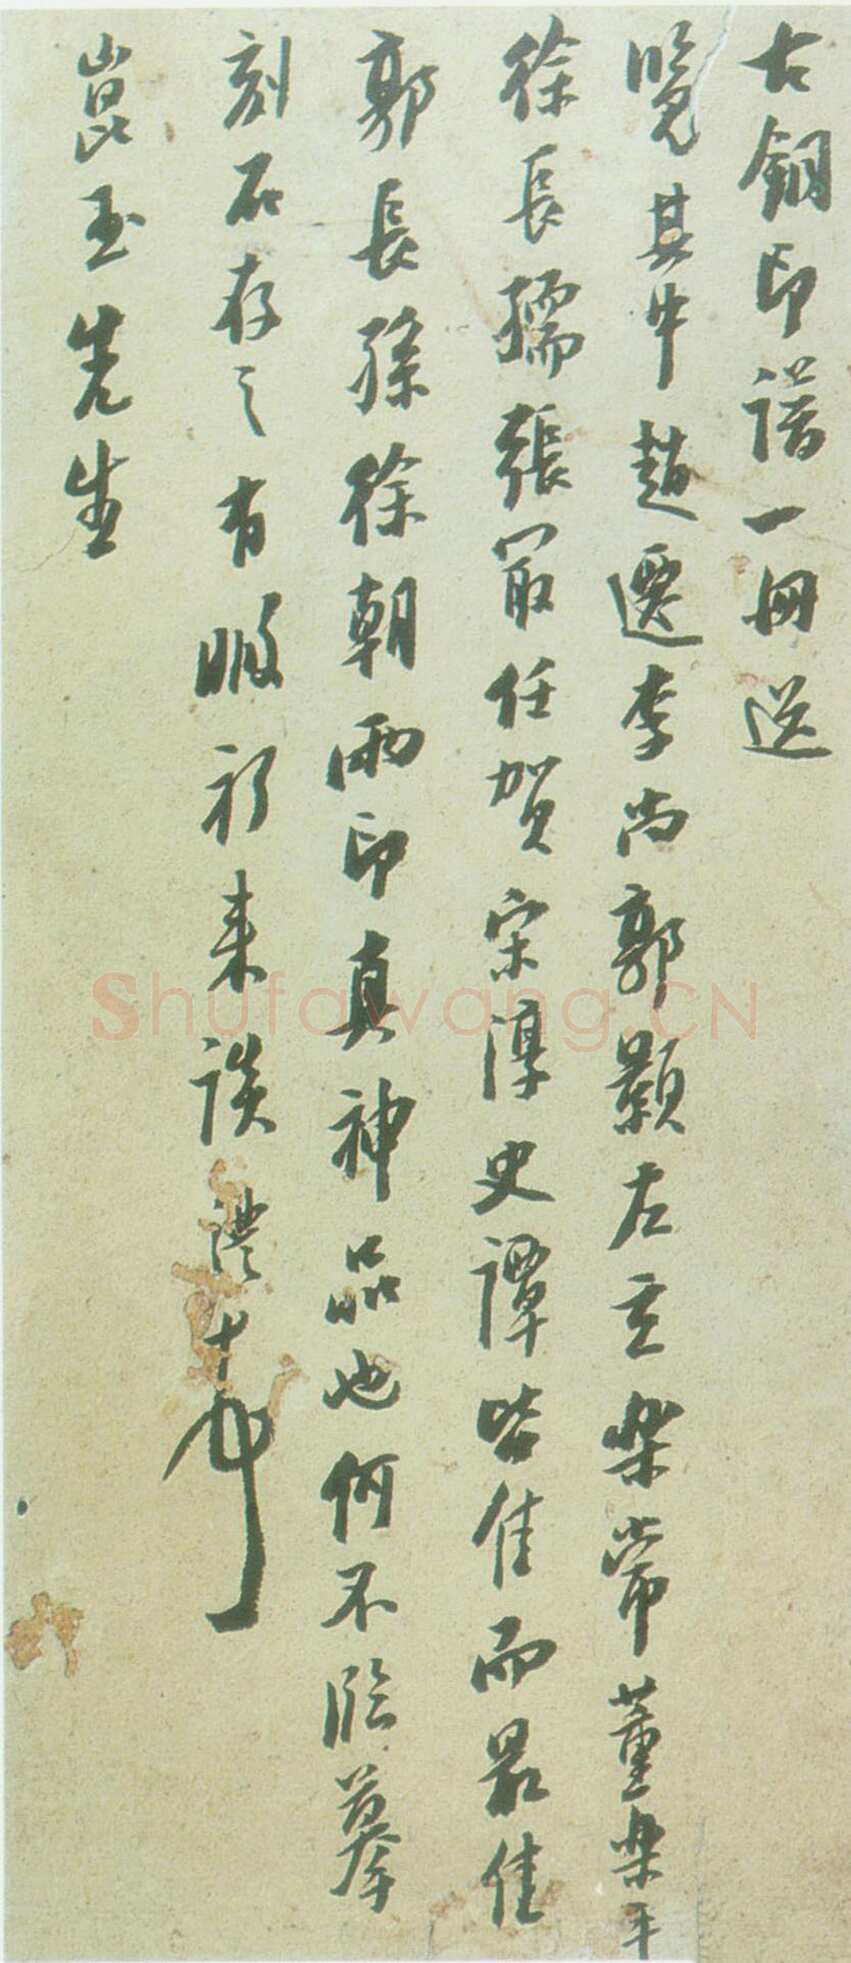 古銅印譜一冊送
覽其中趙遷李尚郭顥左立樂常董樂平
徐長孺張冣任賀宗淳史譚皆佳而最佳
郭長孫徐朝兩印真神品也何不臨摹
刻石存之有暇祈来談澧十
崑玉先生
Shufawang.CN